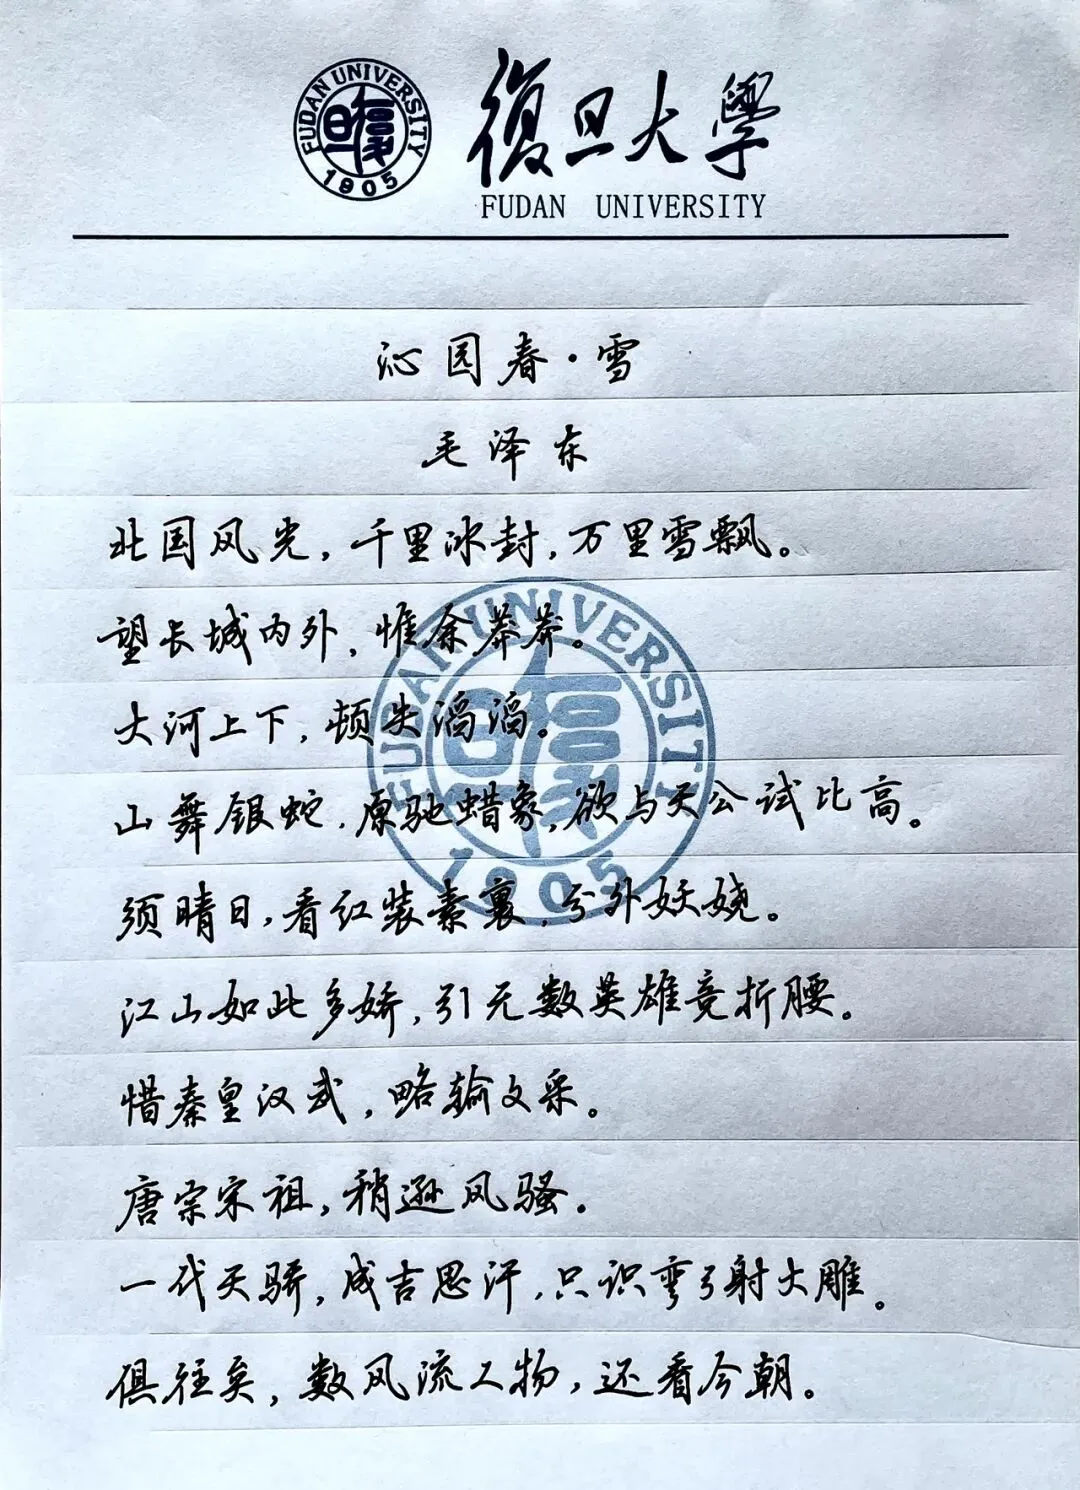 FUDAN UNIVERSITY
1905
復旦大學
FUDAN UNIVERSITY
沁园春·雪
毛泽东
北国风光，千里冰封，万里雪飘。
望长城内外，惟余莽莽。
大河上下，顿失滔滔。
山舞银蛇，原驰蜡象，欲与天公试比高。
须晴日，看红装素裹，分外妖娆。
江山如此多娇，引无数英雄竞折腰。
惜秦皇汉武，略输文采。
唐宗宋祖，稍逊风骚。
一代天骄，成吉思汗，只识弯弓射大雕。
俱往矣，数风流人物，还看今朝。
FUDAN UNIVERSITY
1905